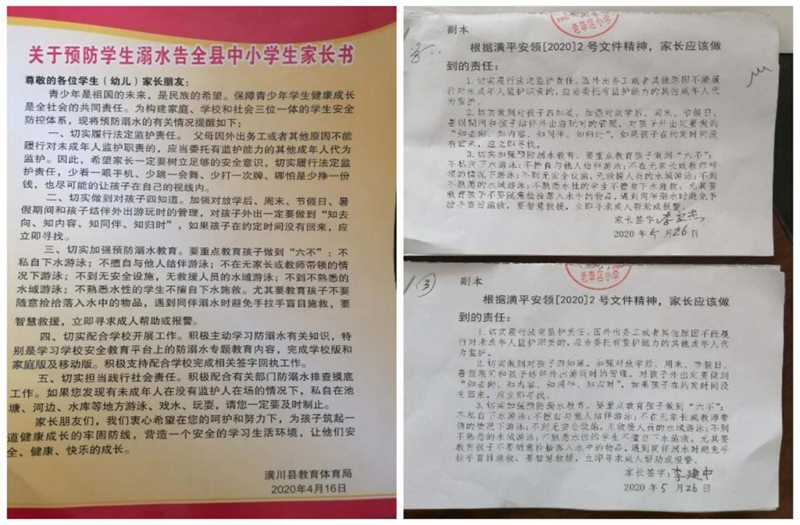 关于预防学生溺水告全县中小学生家长书
尊敬的各位学生（幼儿）家长朋友：
青少年是祖国的未来，是民族的希望。保障青少年学生健康成长
是全社会的共同责任。为构建家庭、学校和社会三位一体的学生安全
防控体系，现将预防溺水的有关情况提醒如下：
一、切实履行法定监护责任。 父母因外出务工或者其他原因不能
履行对未成年人监护职责的，应当委托有监护能力的其他成年人代为
监护。因此，希望家长一定要树立足够的安全意识，切实履行法定监
护责任，少看一眼手机、少跳一会舞、少打一次牌、哪怕是少挣一份
钱，也尽可能的让孩子在自己的视线内。
二、切实做到对孩子四知道。加强对放学后、周末、节假日、暑
假期间和孩子结伴外出游玩时的管理，对孩子外出一定要做到“知去
向、知内容、知同伴、知归时”，如果孩子在约定时间没有回来，应
立即寻找。
三、切实加强预防溺水教育。要重点教育孩子做到“六不”：不
私自下水游泳；不擅自与他人结伴游泳；不在无家长或教师带领的情
况下游泳；不到无安全设施，无救援人员的水域游泳；不到不熟悉的
水域游泳；不熟悉水性的学生不擅自下水施救。尤其要教育孩子不要
随意捡拾落入水中的物品，遇到同伴溺水时避免手拉手盲目施救，要
智慧救援，立即寻求成人帮助或报警。
四、切实配合学校开展工作。积极主动学习防溺水有关知识，特
别是学习学校安全教育平台上的防溺水专题教育内容，完成学校版和
家庭版及移动版。积极支持配合学校完成相关签字回执工作。
五、切实担当践行社会责任。积极配合有关部门防溺水排查摸底
工作。如果您发现有未成年人在没有监护人在场的情况下，私自在池
塘、河边、水库等地方游泳、戏水、玩耍，请您一定要及时制止。
家长朋友们，我们衷心希望在您的呵护和努力下，为孩子筑起一
道健康成长的牢固防线，营造一个安全的学习生活环境，让他们安
全、健康、快乐的成长。
潢川县教育体育局
2020年4月16日
副本
根据潢平安领[2020]2号文件精神，家长应该做
到的责任：
1.切实履行法定监护责任。因外出务工或者其他原因不能履
行对未成年人监护职责的，应当委托有监护能力的其他成年人代
为监护。
2.切实做到对孩子四知道。加强对放学后、周末、节假日、
暑假期间和孩子结伴外出游玩时的管理，对孩子外出定要做到
“知去向、知内容、知同伴、知归时”，如果孩子在约定时间没
有回来，应立即寻找。
3.切实加强预防溺水教育。要重点教育孩子做到“六不”：
不私自下水游泳；不擅自与他人结伴游泳；不在无家长或教师带
领的情况下游泳；不到无安全设施，无救援人员的水域游泳；不到
不熟悉的水域游泳；不熟悉水性的学生不擅自下水施救。尤其要
教育孩子不要随意捡拾落入水中的物品，遇到同伴溺水时避免手
拉手盲目施救，要智慧救援，立即寻求成人帮助或报警。
家长签字：
2020年5月26日
老李店小学
③
副本
根据潢平安领[2020]2号文件精神，家长应该做
到的责任：
1.切实履行法定监护责任。因外出务工或者其他原因不能履
行对未成年人监护职责的，应当委托有监护能力的其他成年人代
为监护。
2.切实做到对孩子四知道。加强对放学后、周末、节假日、
暑假期间和孩子结伴外出游玩时的管理，对孩子外出定要做到
“知去向、知内容、知同伴、知归时”，如果孩子在约定时间没
有回来，应立即寻找。
3.切实加强预防溺水教育。要重点教育孩子做到“六不”：
不私自下水游泳；不擅自与他人结伴游泳；不在无家长或教师带
领的情况下游泳；不到无安全设施，无救援人员的水域游泳；不
到不熟悉的水域游泳；不熟悉水性的学生不擅自下水施救。尤其要
教育孩子不要随意捡拾落入水中的物品，遇到同伴溺水时避免手
拉手盲目施救，要智慧救援，立即寻求成人帮助或报警。
家长签字：李建中
2020年5月26日